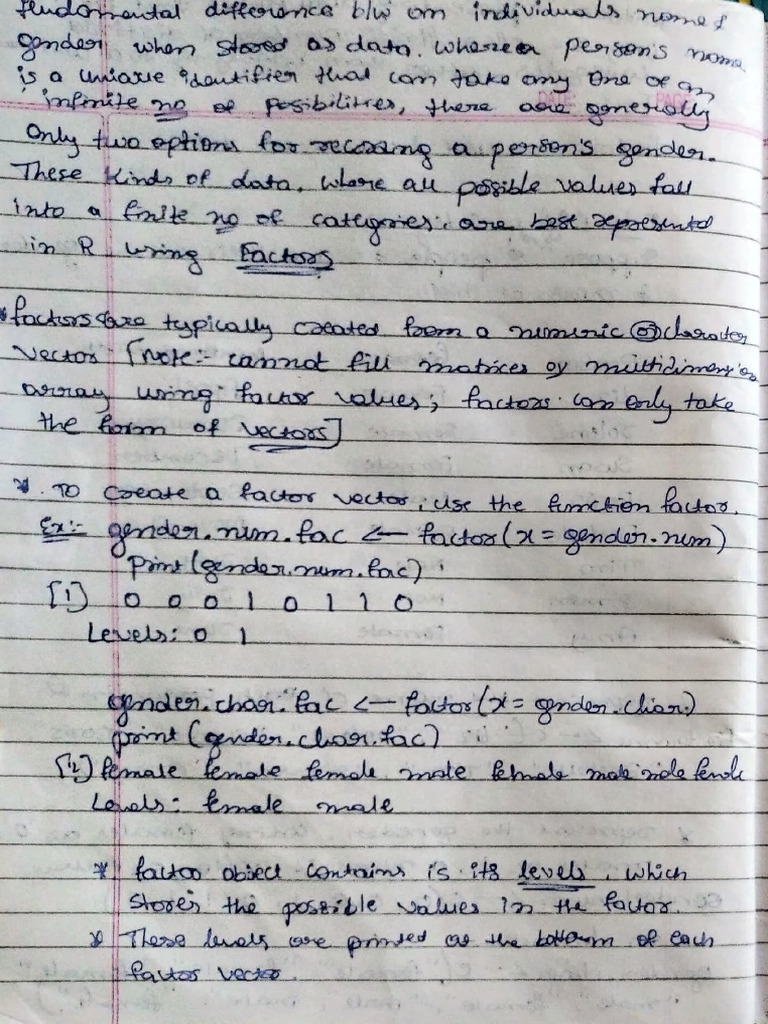 fundamental difference b/w an individual's name &
gender when stored as data. Where a person's name
is a unique identifier that can take any one of an
infinite no of posibilities, there are generally
Only two options for recording a person's gender.
These kinds of data, where all possible values fall
into a finite no of categories, are best represented
in R using Factors
* factors are typically created from a numeric or character
vector [Note:- cannot fill matrices or multidimension
array using factor values; factors can only take
the form of vectors]
* To create a factor vector, use the function factor.
Ex:- gender.num.fac <- factor(x = gender.num)
print(gender.num.fac)
[1] 0 0 0 1 0 1 1 0
Levels: 0 1
gender.char.fac <- factor(x = gender.char)
print (gender.char.fac)
female female female male female male male female
Levels: female male
* factor object contains is its levels, which
stores the possible values in the factor.
* These levels are printed at the bottom of each
factor vector.